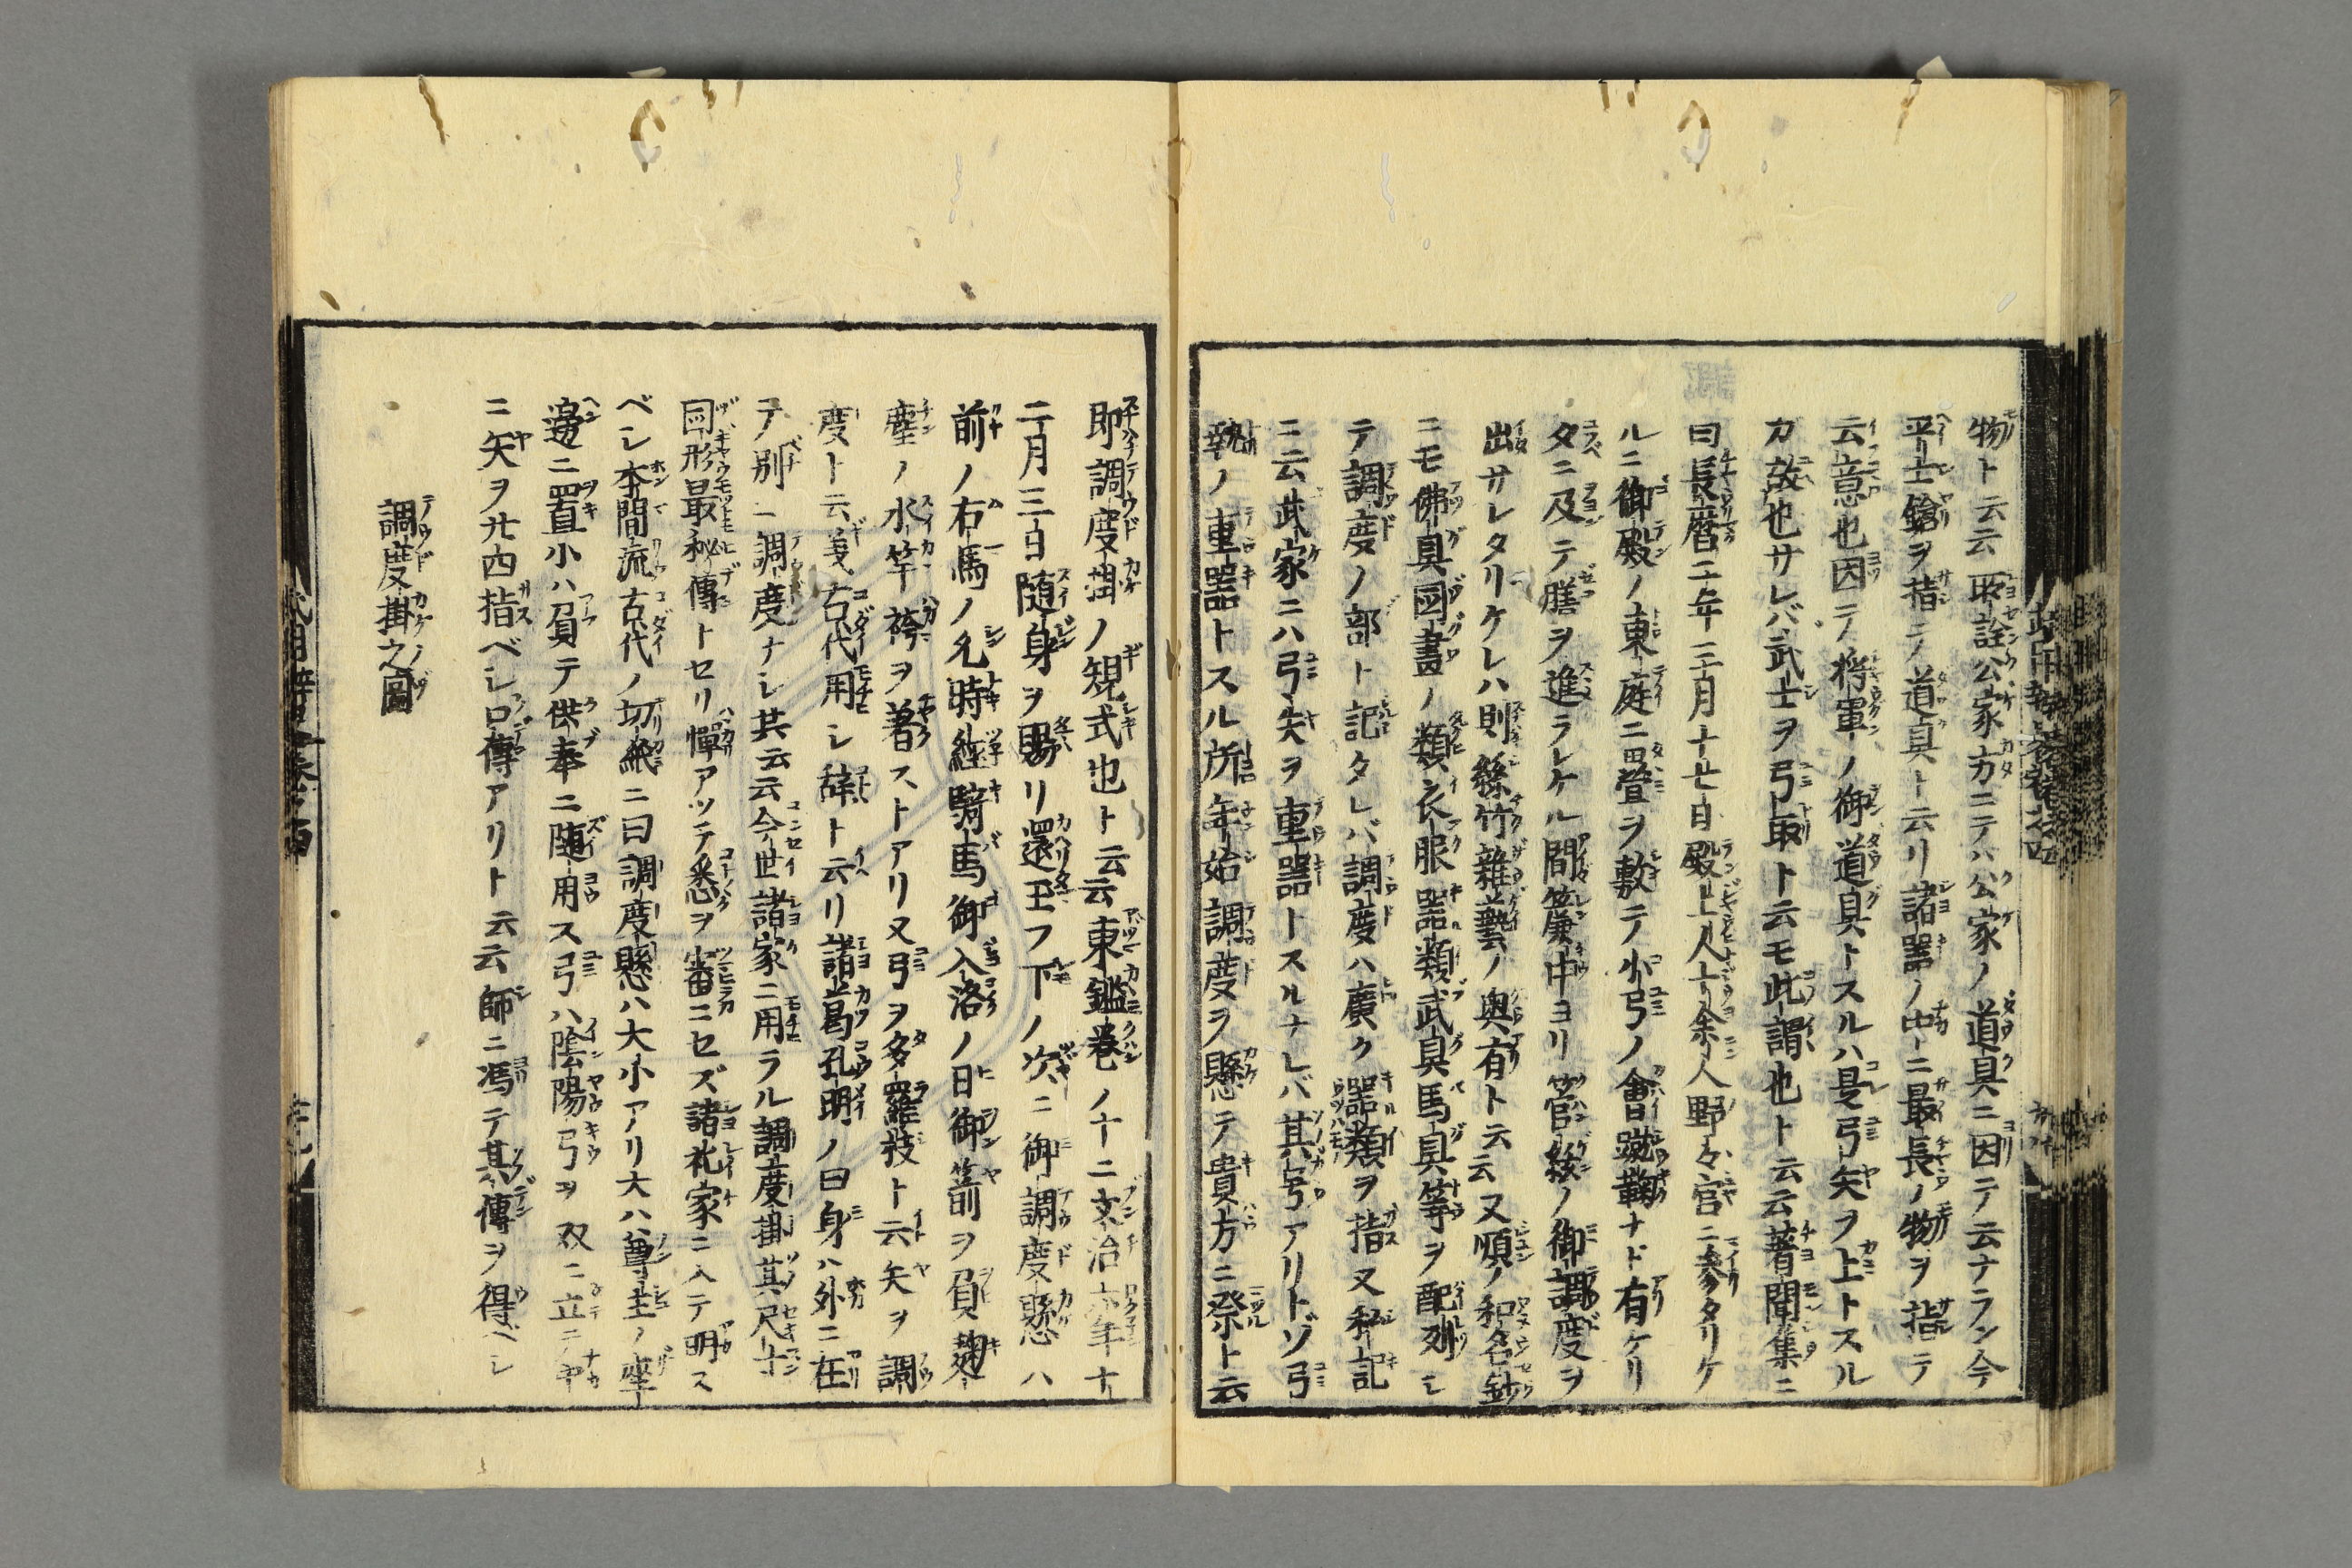 物ト云云所詮公家方ニテハ公家ノ道具ニ因テ云ナラン今
平士鎗ヲ指テ道具ト云リ諸器ノ中ニ最長ノ物ヲ指テ
云意也因テ将軍ノ御道具トスルハ是弓矢ヲ上トスル
カ故也サレバ武士ヲ弓取ト云モ此謂也ト云云著聞集ニ
曰長暦二年三月十七日殿上人十余人野々宮ニ参タリケ
ルニ御殿ノ東庭ニ畳ヲ敷テ小弓ノ會蹴鞠ナド有ケリ
夕ニ及テ膳ヲ進ラレケル間簾中ヨリ管絃ノ御調度ヲ
出サレタリケレハ則絲竹雜藝ノ奥有ト云云又順ノ和名鈔
ニモ佛具図畫ノ類衣服器類武具馬具等ヲ配列シ
テ調度ノ部ト記タレバ調度ハ廣ク器類ヲ指又私記
ニ云武家ニハ弓矢ヲ重器トスルナレバ其号アリトゾ弓
執ノ重器トスル所年始調度ヲ懸テ貴方ニ祭ト云
即調度掛ノ規式也ト云云東鑑巻ノ十二文治六年十
二月三日随身ヲ賜リ還玉フ下ノ次ニ御調度懸ハ
前ノ右馬ノ允時經騎馬御入洛ノ日御箭ヲ負麹
塵ノ水竿袴ヲ著ストアリ又弓ヲ多羅枝ト云矢ヲ調
度ト云㕝古代用シ辞ト云リ諸葛孔明ノ曰身ハ外ニ在
テ別ニ調度ナシ其云云今世諸家ニ用ラル調度掛其尺寸
図形最秘傳トセリ憚アツテ悉ヲ審ニセズ諸礼家ニ入テ明ス
ベシ本間流古代ノ切紙ニ曰調度懸ハ大小アリ大ハ尊主ノ座
邊ニ置小ハ負テ供奉ニ随用ス弓ハ陰陽弓ヲ双ニ立テ中
ニ矢ヲ廿四指ベシ口傳アリト云云師ニ馮テ其傳ヲ得ベシ
調度掛之圖